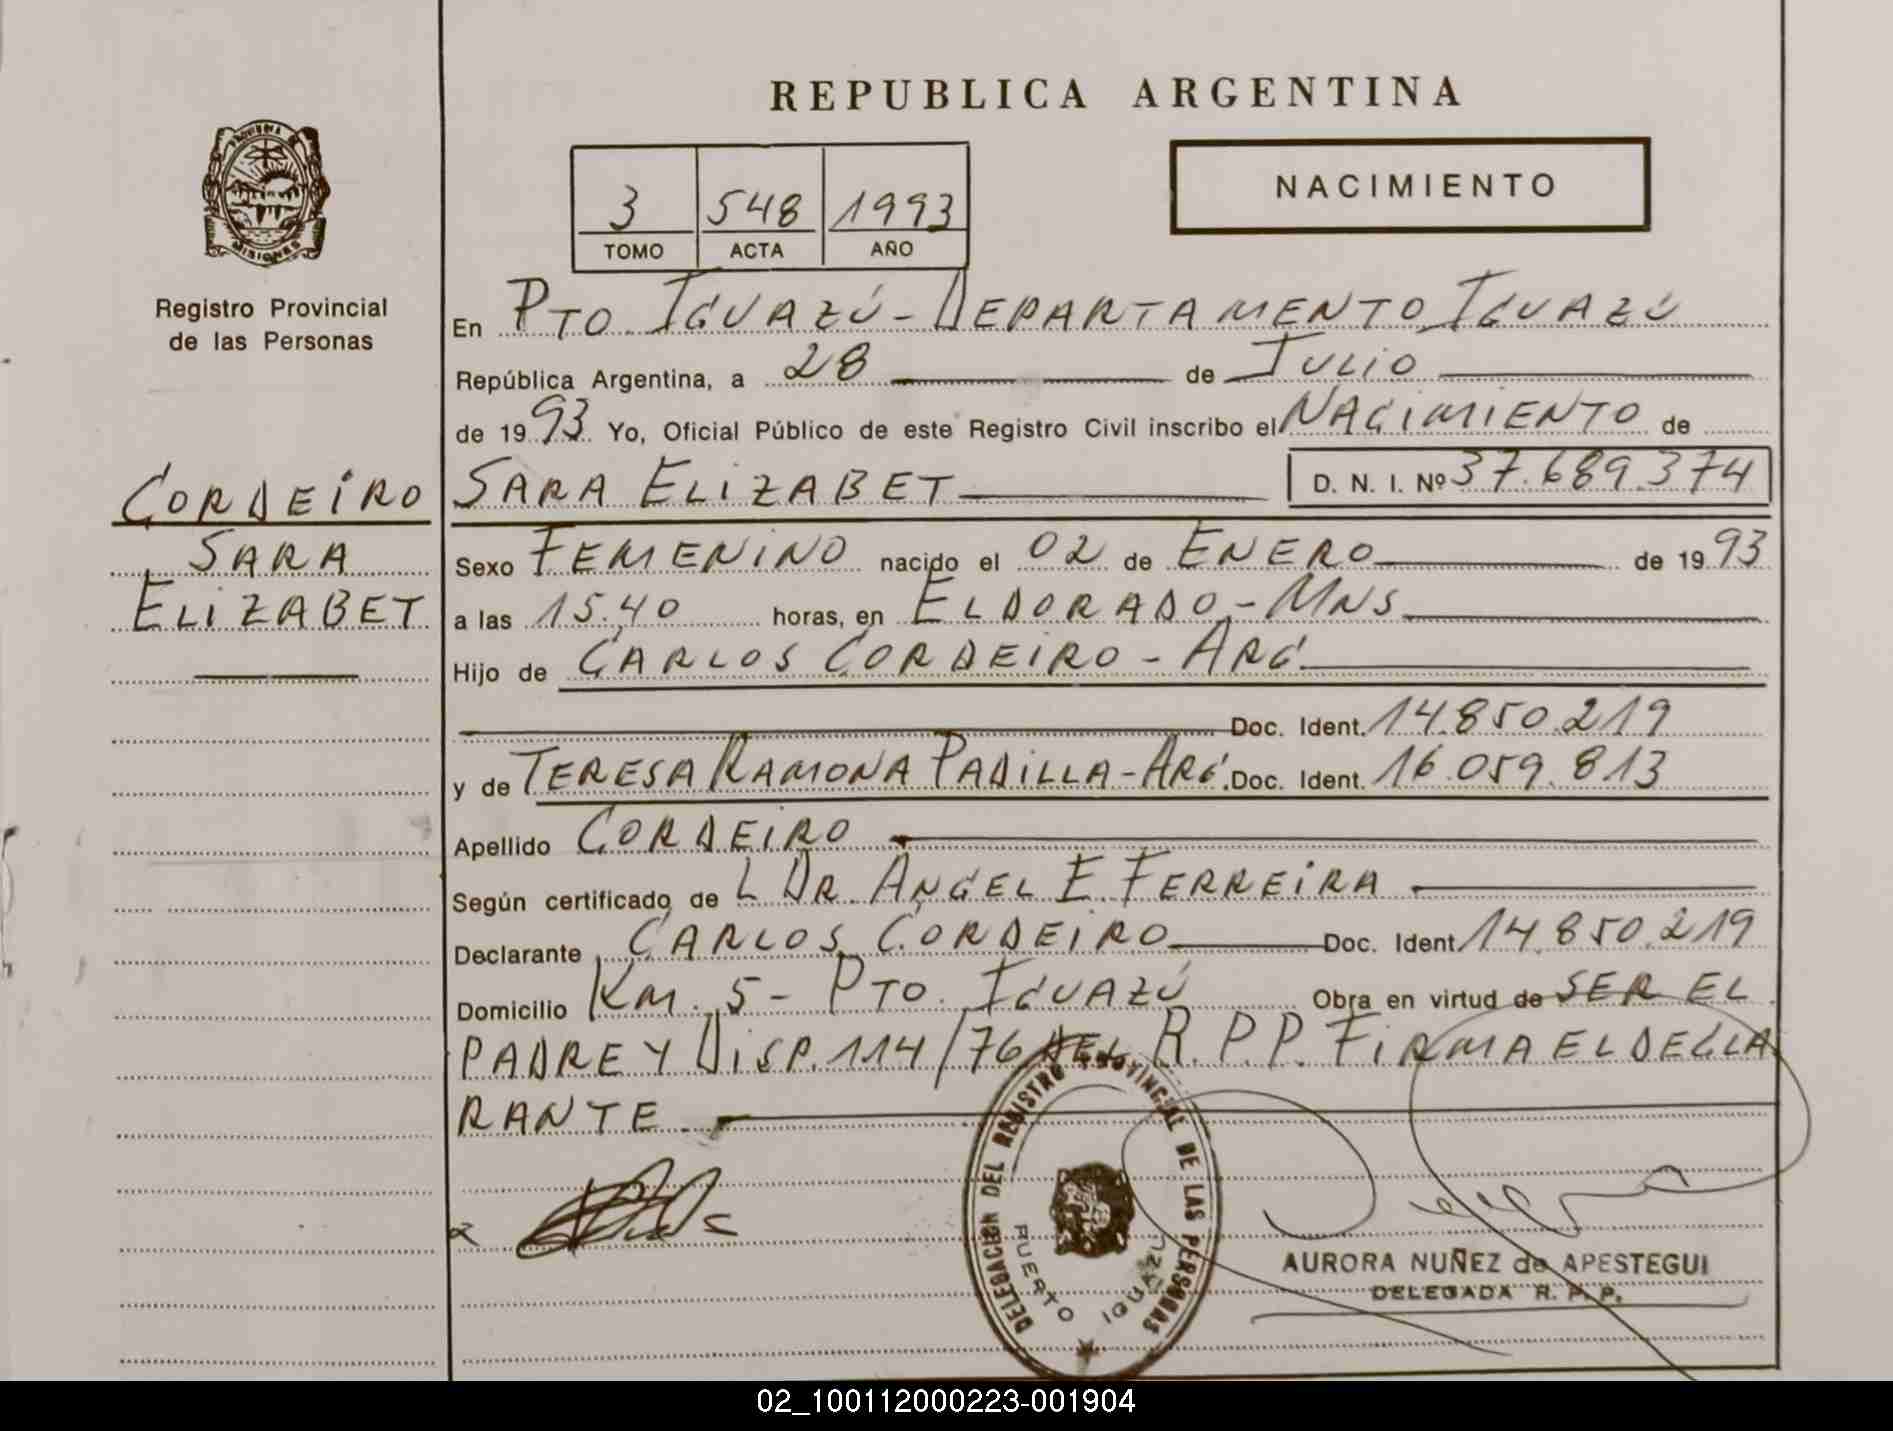 REPUBLICA ARGENTINA
PROVINCIA
MISIONES
Registro Provincial
de las Personas
3 548 1993
TOMO ACTA AÑO
NACIMIENTO
En PTO. IGUAZÚ - DEPARTAMENTO IGUAZÚ
República Argentina, a 28 de JULIO
de 1993 Yo, Oficial Público de este Registro Civil inscribo el NACIMIENTO de
CORDEIRO
SARA
ELIZABET
SARA ELIZABET D. N. I. Nº 37.689.374
Sexo FEMENINO nacido el 02 de ENERO de 1993
a las 15,40 horas, en ELDORADO - MNS
Hijo de CARLOS CORDEIRO - ARG.
Doc. Ident. 14.850.219
y de TERESA RAMONA PADILLA - ARG. Doc. Ident. 16.059.813
Apellido CORDEIRO
Según certificado de L DR. ANGEL E. FERREIRA
Declarante CARLOS CORDEIRO Doc. Ident 14.850.219
Domicilio KM. 5 - PTO. IGUAZÚ Obra en virtud de SER EL
PADRE Y DISP. 114/76 DEL R.P.P. FIRMA EL DECLA
RANTE.
DELEGACION DEL REGISTRO PROVINCIAL DE LAS PERSONAS
PUERTO IGUAZU
AURORA NUÑEZ de APESTEGUI
DELEGADA R. P. P.
02_100112000223-001904